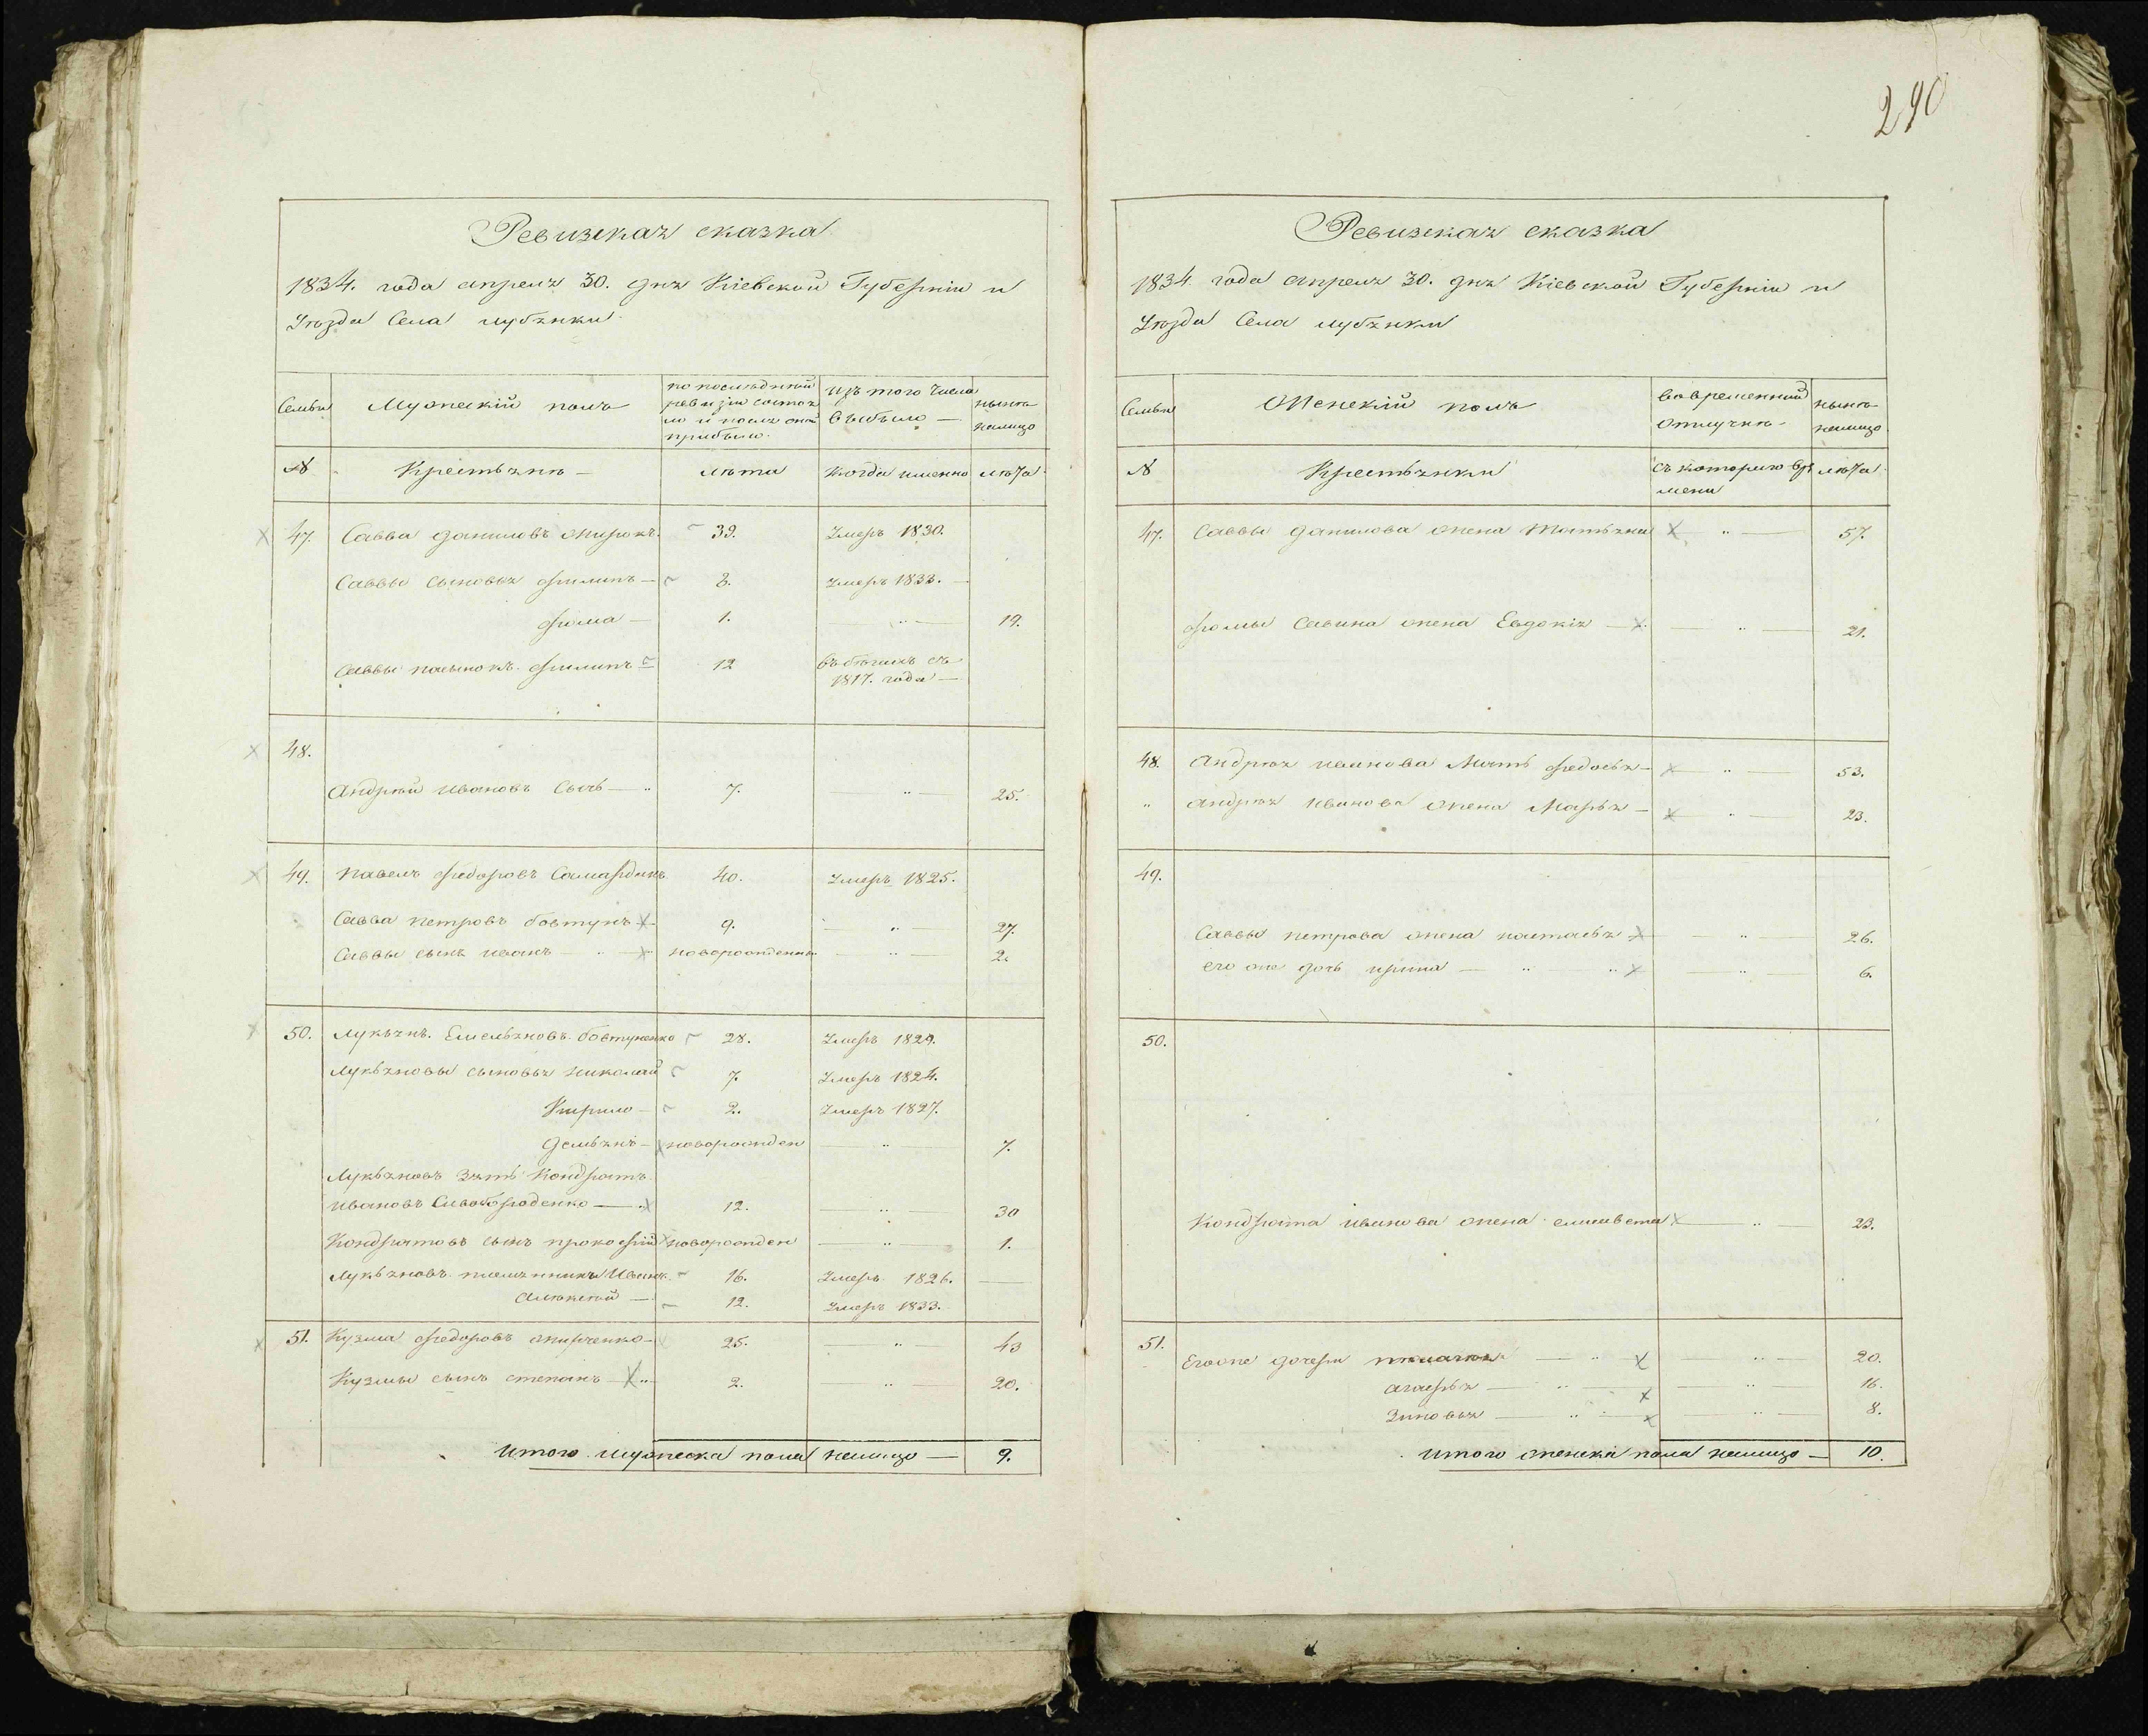 290
Ревизская сказка
1834. года апреля 30. дня Кіевской Губерніи и
Уѣзда Села лубянки
Семьи
Мужескій полъ
по послѣдней
ревизіи состоя
ло и послѣ оной
прибыло.
изъ того числа
выбыло —
нынѣ
налицо
№
Крестьянѣ —
лѣта
когда именно
лѣта
47. Савва даниловъ жирокъ. 39. Умеръ 1830.
Саввы сыновья филипъ — 8. Умеръ 1833. —
фома — 1. — „ — 19.
Саввы пасынокъ филипъ 12 въ бѣгахъ съ
1817. года —
48.
Андрѣй ивановъ Сычъ — „ 7. — „ — 25.
49. павелъ федоровъ 40. Умеръ 1825.
Савва петровъ бовтунъ 9. — „ — 27.
Саввы сынъ иванъ — „ — новорожденны — „ — 2.
50. лукьянъ. Емельяновъ. бовтуненко 28. Умеръ 1829.
лукьяновы сыновья николай 7. Умеръ 1824.
Кирило — 2. Умеръ 1827.
демьянъ — новорожден — „ — 7.
Лукьяновъ Зять Кондратъ
ивановъ Сивобороденко — „ 12. — „ — 30
Кондратовъ сынъ прокофій новорожден — „ — 1.
лукьяновъ племянникъ Иванъ. 16. Умеръ 1826. —
Алѣксѣй — 12. Умеръ 1833.
51. Кузма федоровъ жирченко — 25. — „ — 43
Кузмы сынъ степанъ — „ 2. — „ — 20.
Итого мужеска пола налицо — 9.
Ревизская сказка
1834. года апреля 30. дня Кіевской Губерніи и
Уѣзда Села лубянки
Семьи
Женскій полъ
во временной
отлучкѣ
нынѣ
налицо
№
Крестьянки
съ которого вре
мени
лѣта
47. Саввы данилова жена татьяна „ — 57.
фомы Савина жена Евдокія — — „ — 21.
48. Андрѣя иванова Мать федосья — — „ — 53.
„ андрѣя иванова жена Марья — — „ — 23.
49.
Саввы петрова жена настасья — „ — 26.
его же дочь ирина — „ „ „ 6.
50.
Кондрата иванова жена елисавета — „ — 23.
51.
Его же дочери — „ — „ — 20.
агафья — „ — — „ — 16.
Зиновья — „ — — „ — 8.
Итого женска пола налицо — 10.